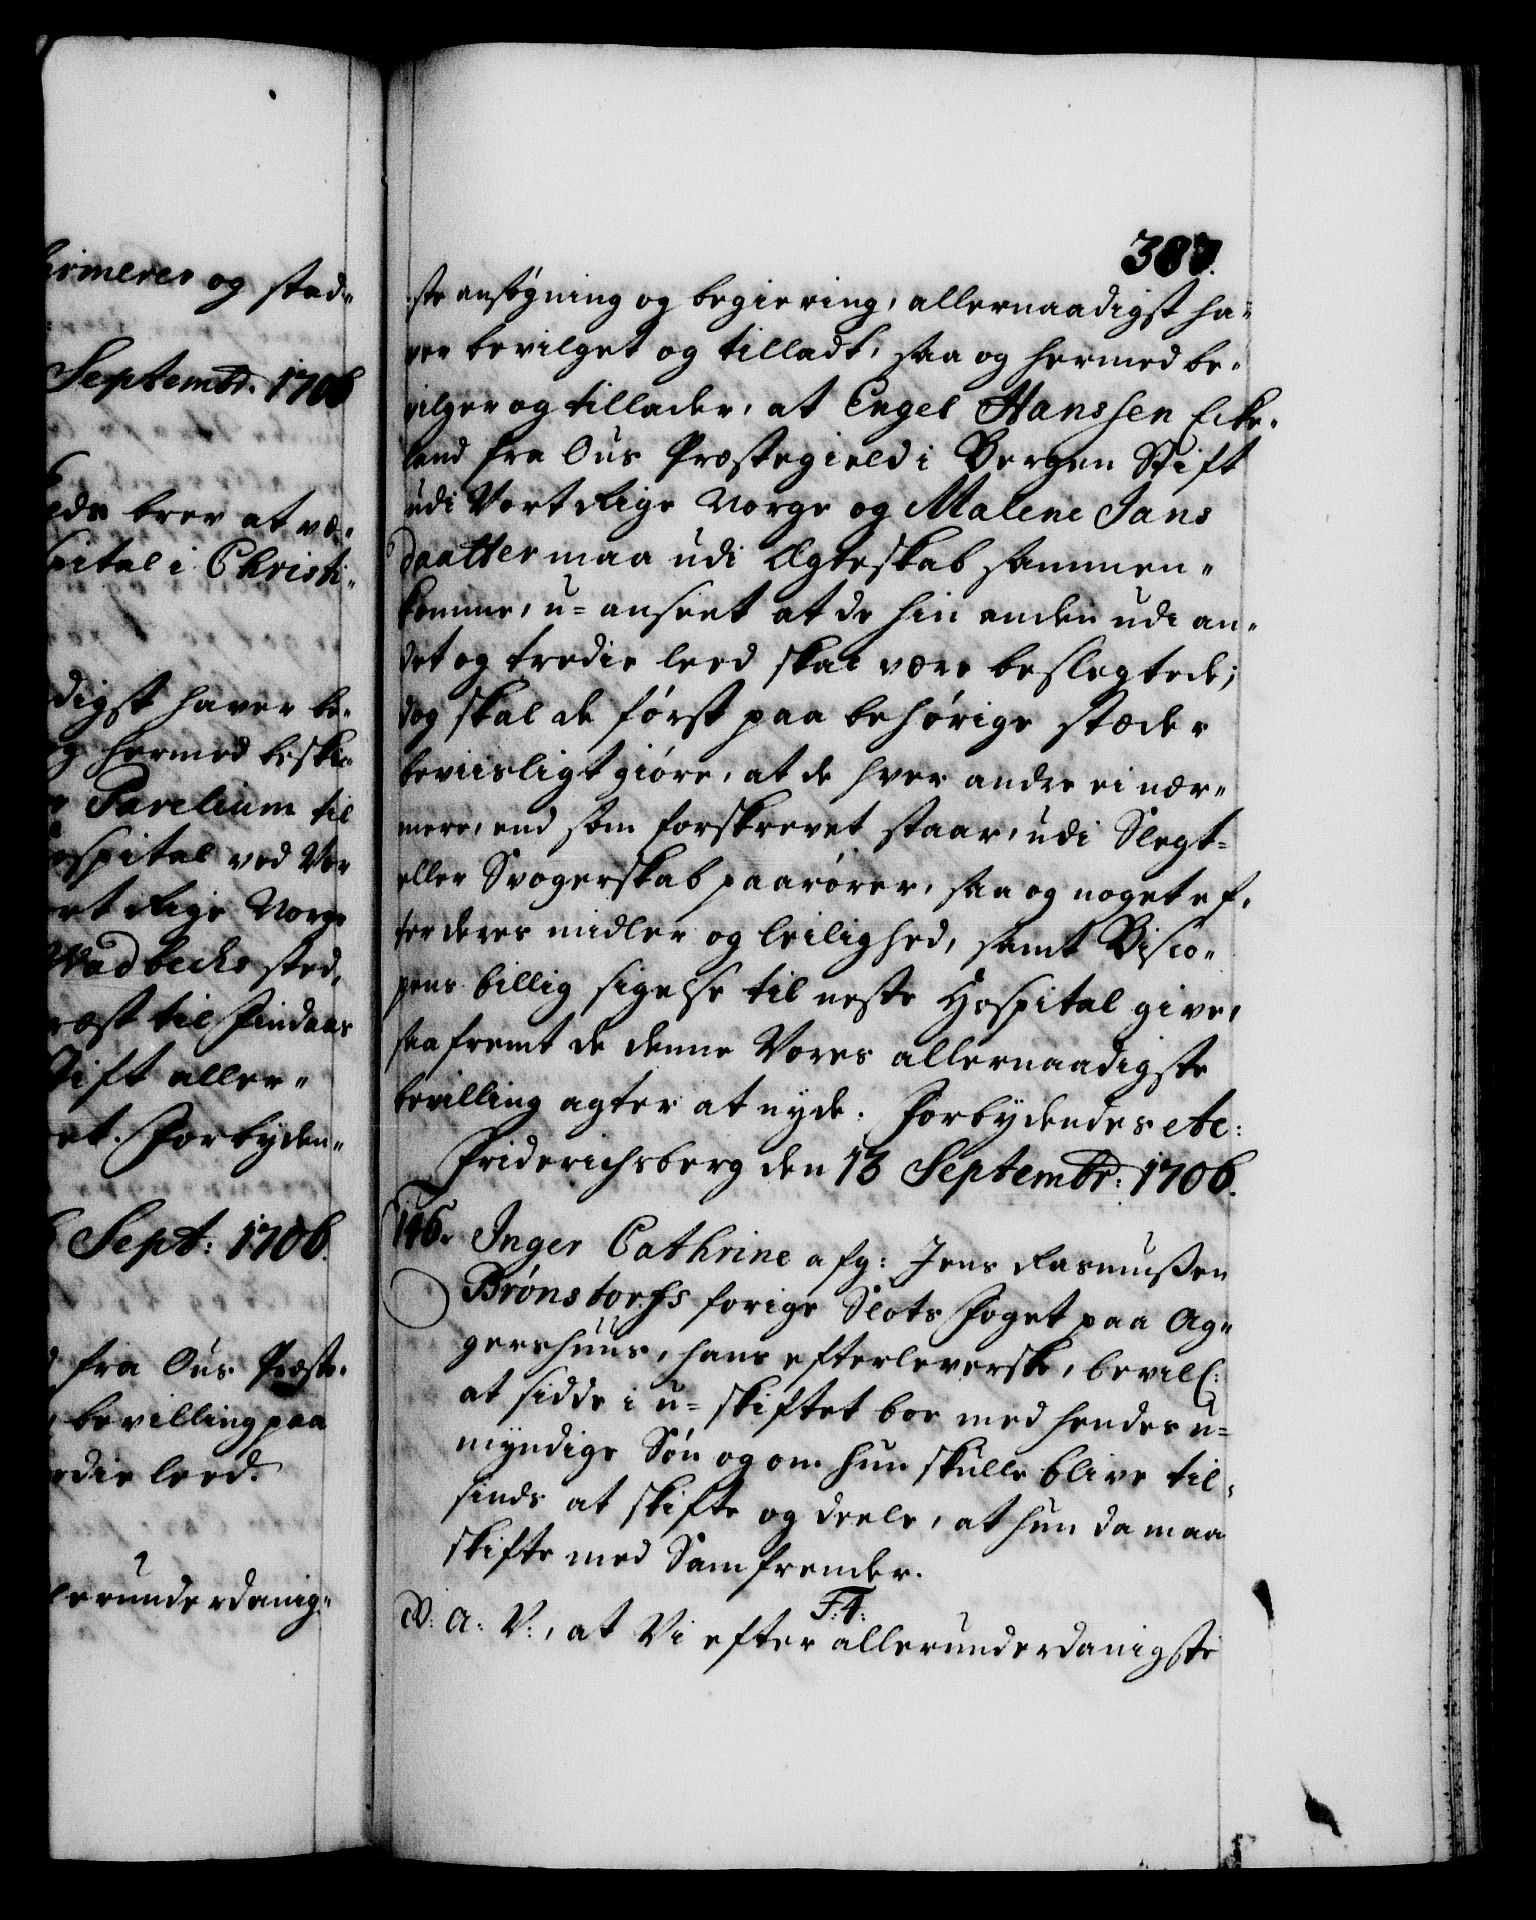 irmerer og stad-
Septembr. 1706
brev at væ-
pital i Christi-
digst haver be-
og hermed beskic-
Parelium til
ospital ved Vor
ort Rige Norge
Wadbechs sted,
til Findaas
Stift aller-
et. Forbyden-
Sept: 1706.
fra Ous Præste-
bevilling paa
redie leed.
lerunderdanig-
387.
ste ansøgning og begiering, allernaadigst ha-
ver bevilget og tilladt, saa og hermed be-
vilger og tillader, at Engel Hanssen Eike-
land fra Ous Præstegield i Bergen Stift
udi Vort Rige Norge og Malene Jans
daatter maa udi Ægteskab sammen-
komme, u-anseet at de hin anden udi an-
det og tredie leed skal være beslegtede;
dog skal de først paa behørige stæder
beviisligt giøre, at de hver andre ei nær-
mere, end som forskrevet staar, udi Slegt-
eller Svogerskab paarører, saa og noget ef-
ter deres midler og leilighed, samt Bisco-
pens billig sigelse til neste Hospital give,
saa fremt de denne Vores allernaadigste
bevilling agter at nyde. Forbydendes etc:
Friderichsberg den 13 Septembr: 1706.
146. Inger Cathrine afg: Jens Rasmussen
Brønstorffs forige Slots Foget paa Ag-
gershuus, hans efterleverske, bevill:
at sidde i u-skiftet boe med hendes u-
myndige Søn og om hun skulle blive til-
sinds at skifte og deele, at hun da maa
skifte med Samfrender.
F: 4:
G: A: V:, at Vi efter allerunderdanigste